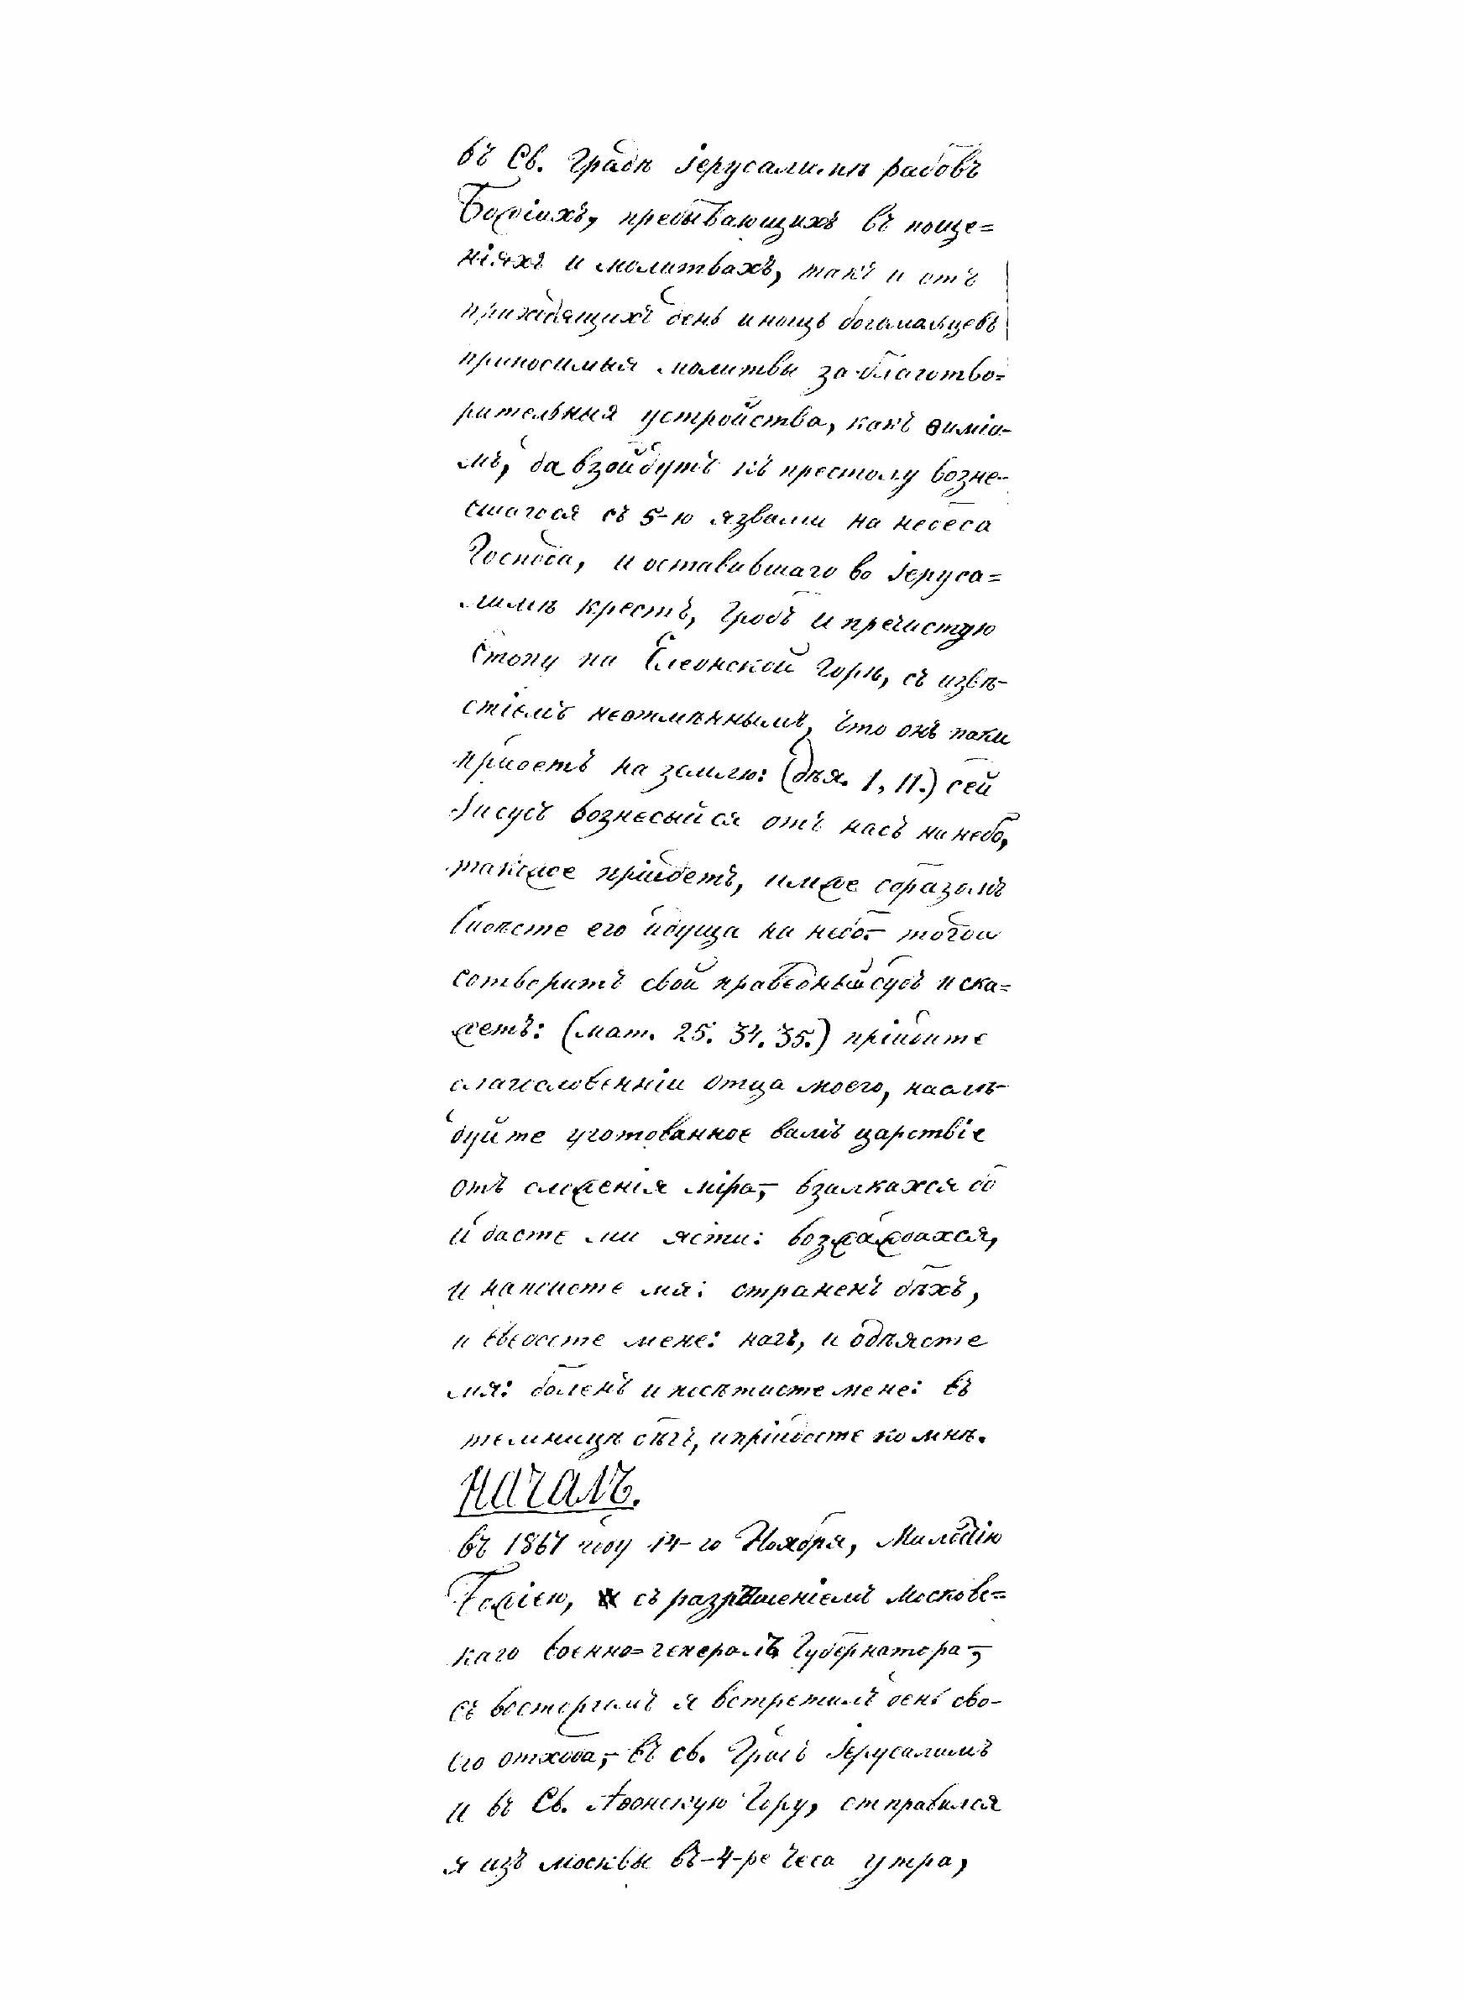 въ Св. Градѣ Іерусалимѣ рабовъ
Божіихъ, пребывающихъ въ поще=
ніяхъ и молитвахъ, такъ и отъ
приходящихъ день и нощь богомольцевъ
приносимыя молитвы за благотво=
рительныя устройства, какъ ѳиміа-
мъ, да взойдутъ къ престолу возне-
сшагося съ 5-ю язвами на небеса
Господа, и оставившаго во Іеруса=
лимѣ крестъ, гробъ и пречистую
Стопу на Елеонской горѣ, съ извѣ-
стіемъ неотмѣннымъ, что онъ паки
пріидетъ на землю: (дѣя. 1, 11.) сей
Іисусъ вознесыйся отъ насъ на небо,
такоже пріидетъ, имже образомъ
видѣсте его идуща на небо:- тогда
сотворитъ свой праведный судъ и ска=
жетъ: (мат. 25. 34. 35.) пріидите
благословенніи отца моего, наслѣ-
дуйте уготованное вамъ царствіе
отъ сложенія міра,- взалкахся бо
и дасте ми ясти: возжаждахся,
и напоисте мя: страненъ бѣхъ,
и введосте мене: нагъ, и одѣясте
мя: боленъ и посѣтисте мене: въ
темницѣ бѣхъ, и пріидосте ко мнѣ.
Началъ.
въ 1861 году 14-го Ноября, Милостію
Божіею, съ разрѣшеніемъ Московс=
каго военно=генералъ Губернатора,-
съ восторгомъ я встрѣтилъ день сво-
его отхода,- въ св. Градъ Іерусалимъ
и въ Св. Аѳонскую Гору, отправился
я изъ москвы въ-4-ре часа утра,